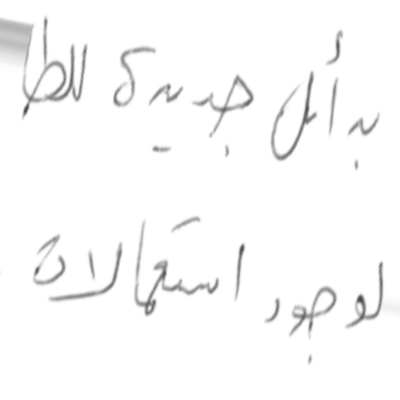 بدائل جديدة للطا
لوجود استعمالات